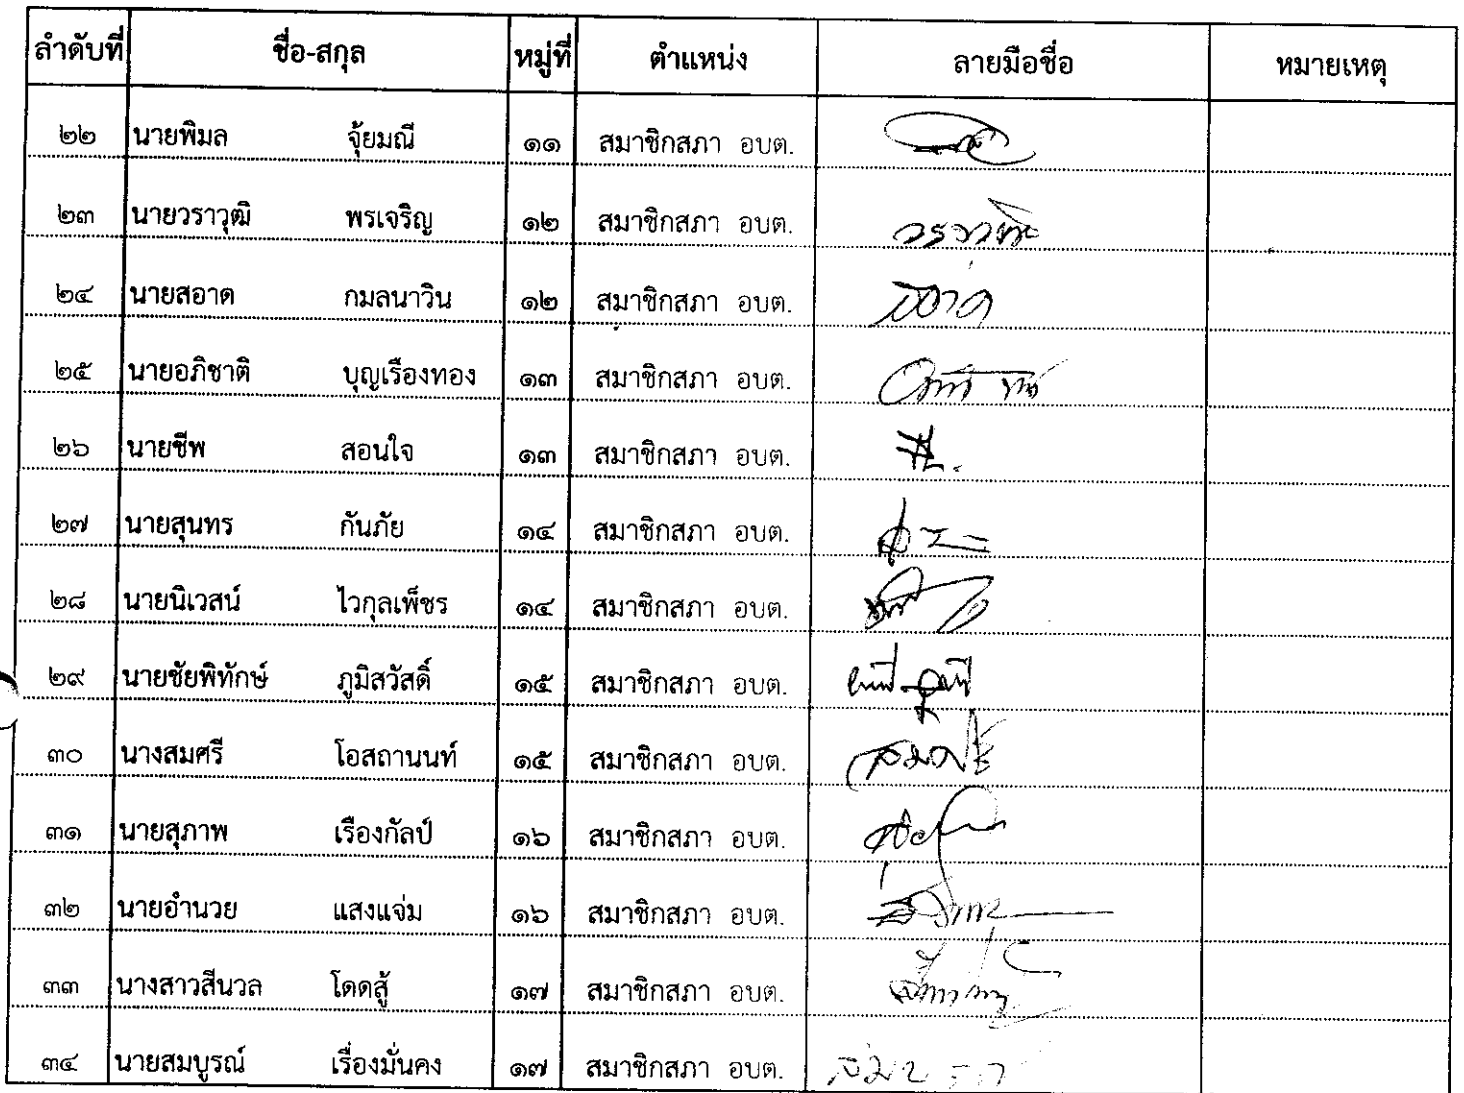 ลำดับที่ ชื่อ-สกุล หมู่ที่ ตำแหน่ง ลายมือชื่อ หมายเหตุ
๒๒ นายพิมล จุ้ยมณี ๑๑ สมาชิกสภา อบต.
๒๓ นายวราวุฒิ พรเจริญ ๑๒ สมาชิกสภา อบต.
๒๔ นายสอาด กมลนาวิน ๑๒ สมาชิกสภา อบต. สอาด
๒๕ นายอภิชาติ บุญเรืองทอง ๑๓ สมาชิกสภา อบต.
๒๖ นายชีพ สอนใจ ๑๓ สมาชิกสภา อบต.
๒๗ นายสุนทร กันภัย ๑๔ สมาชิกสภา อบต.
๒๘ นายนิเวสน์ ไวกุลเพ็ชร ๑๔ สมาชิกสภา อบต.
๒๙ นายชัยพิทักษ์ ภูมิสวัสดิ์ ๑๕ สมาชิกสภา อบต.
๓๐ นางสมศรี โอสถานนท์ ๑๕ สมาชิกสภา อบต. สมศรี
๓๑ นายสุภาพ เรืองกัลป์ ๑๖ สมาชิกสภา อบต.
๓๒ นายอำนวย แสงแจ่ม ๑๖ สมาชิกสภา อบต.
๓๓ นางสาวสีนวล โดดสู้ ๑๗ สมาชิกสภา อบต.
๓๔ นายสมบูรณ์ เรื่องมั่นคง ๑๗ สมาชิกสภา อบต.